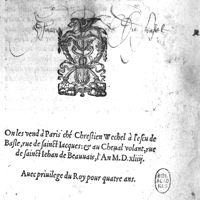 On les vend à Paris chés Chrestien Wechel à l'escu de
Basle, rue de sainct Iacques: & au Cheval volant, rue
de sainct Iehan de Beauuais, l'An M.D.xliiij.
Auec priuilege du Roy pour quatre ans.